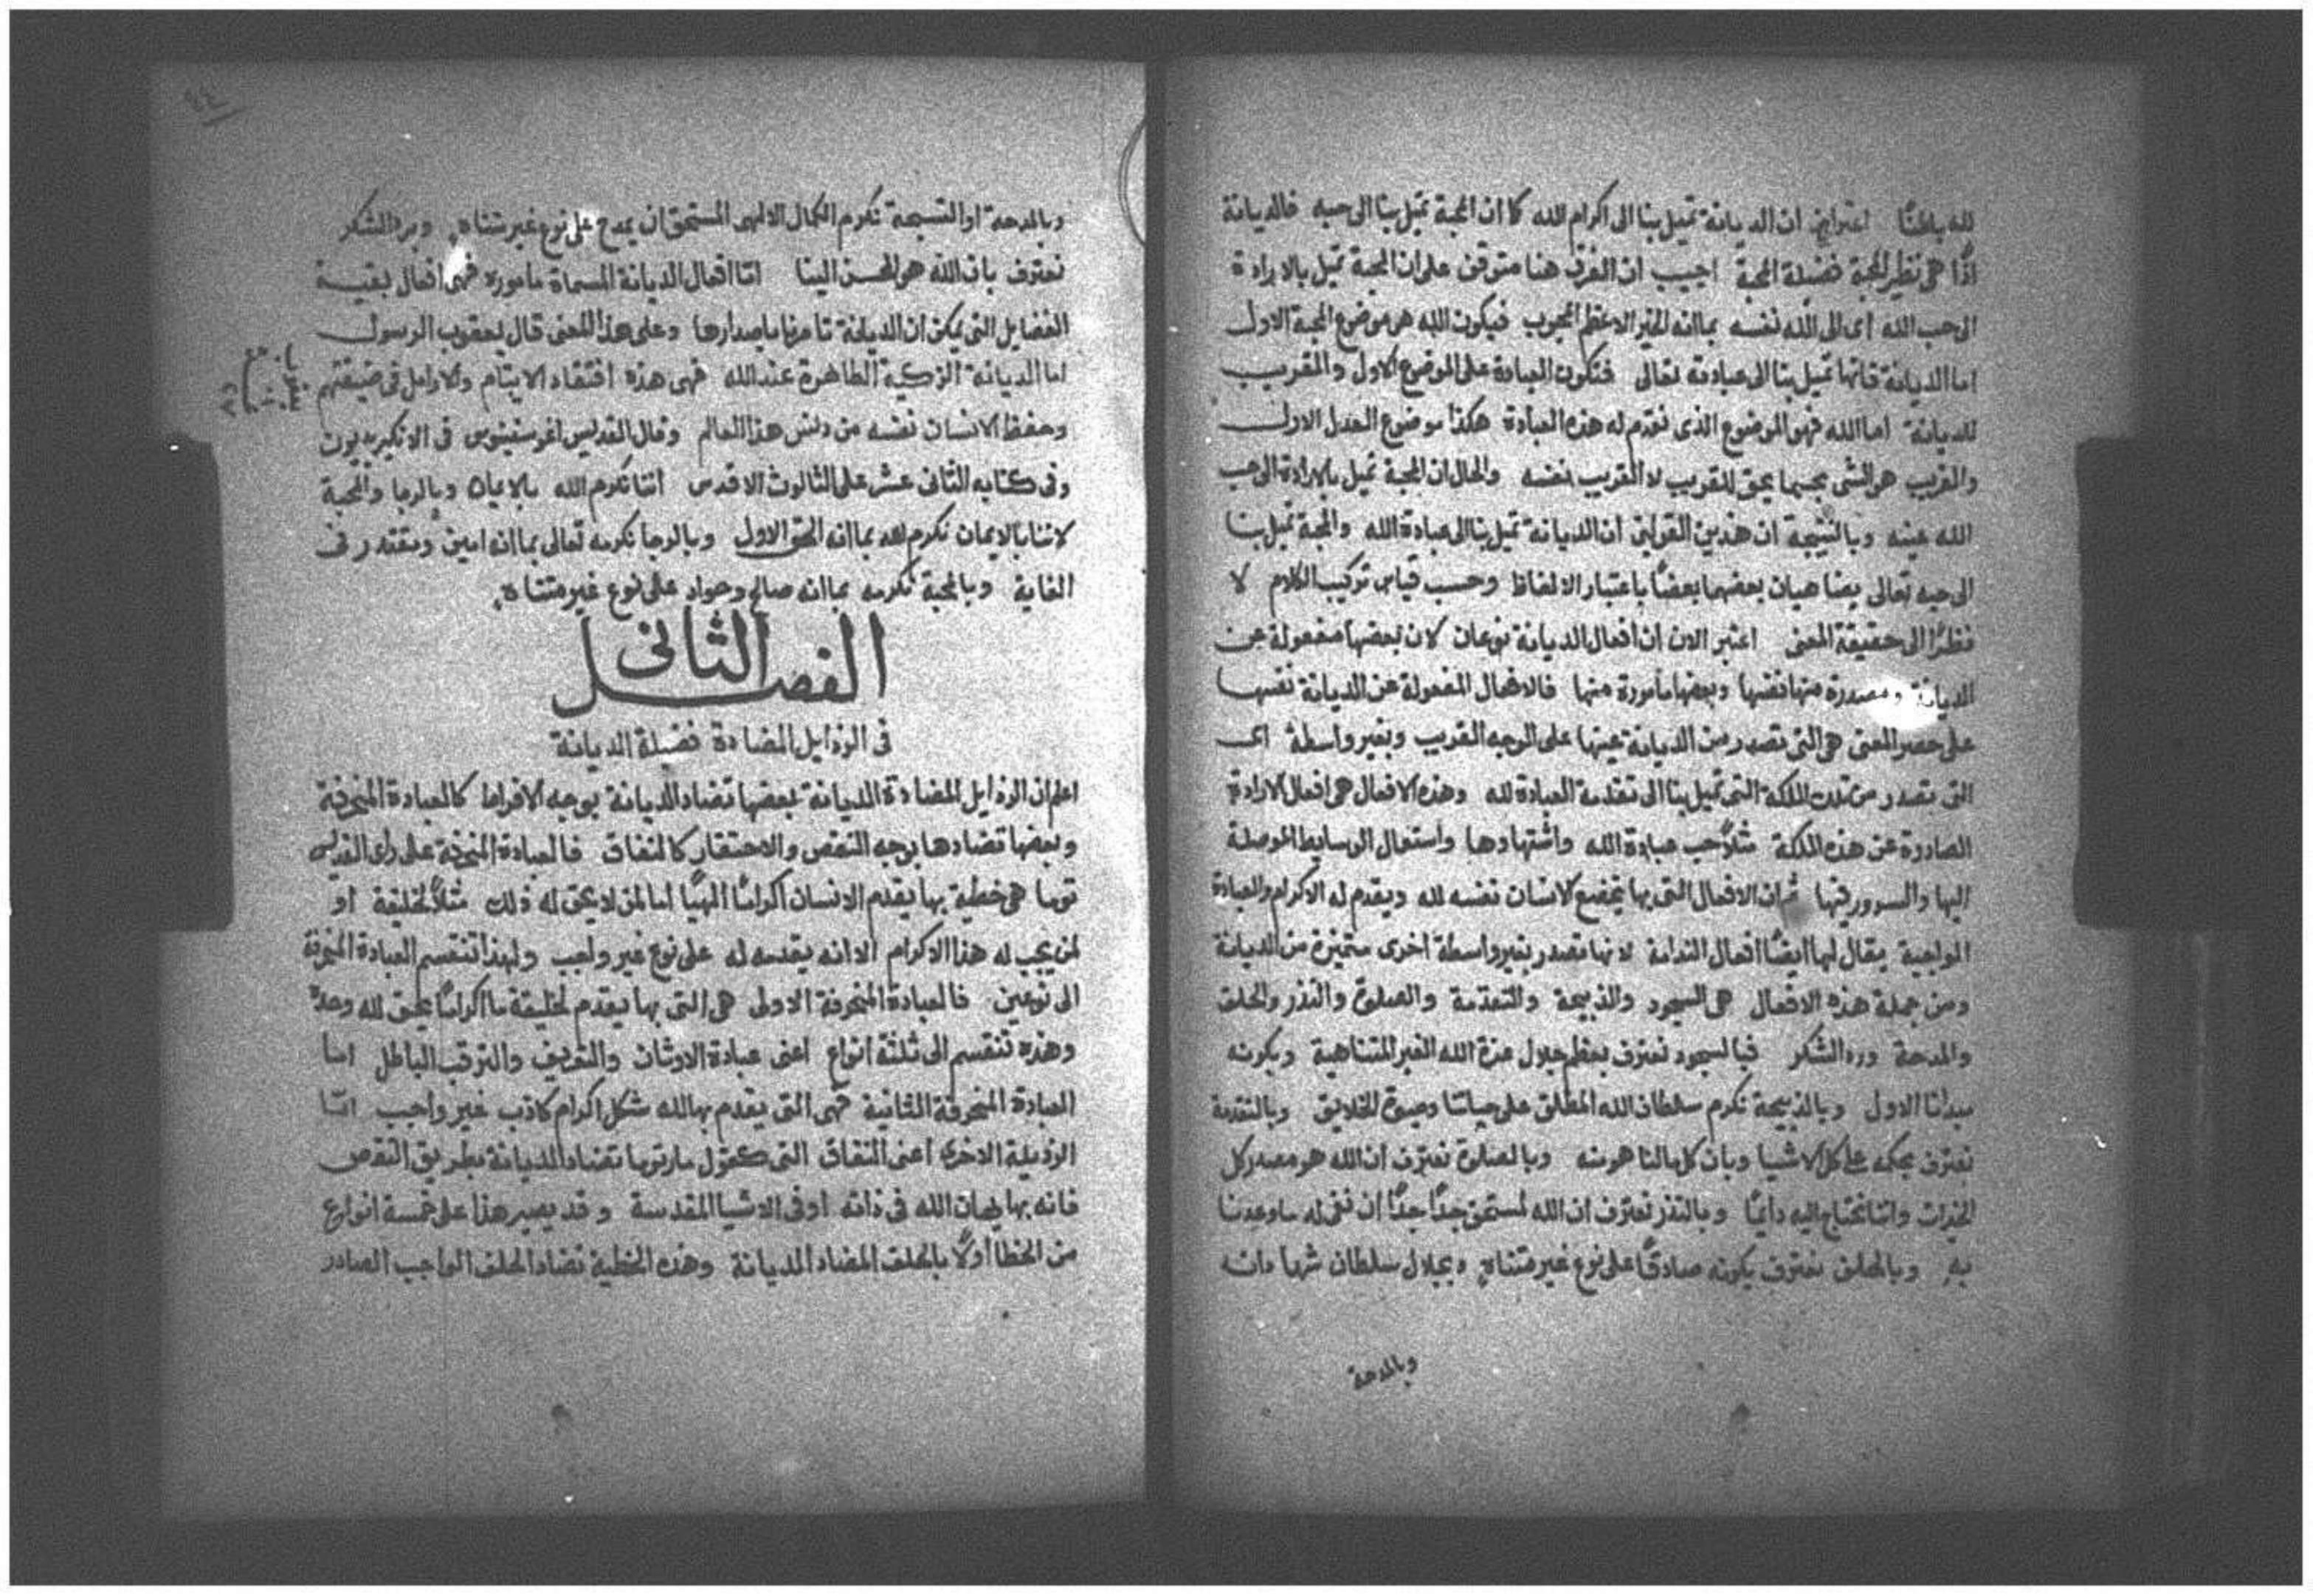 لله باطنًا اعتراض ان الديانة تميل بنا الى اكرام الله كما ان المحبة تميل بنا الى حبه فالديانة
اذًا هي نظير المحبة فضيلة المحبة اجيب ان الفرق هنا متوقف على ان المحبة تميل بالارادة
الى حب الله اى الى الله نفسه بما انه الخير الاعظم المحبوب فيكون الله هو موضوع المحبة الاول
اما الديانة فانها تميل بنا الى عبادته تعالى فتكون العبادة على الموضوع الاول والقريب
للديانة اما الله فهو الموضوع الذى نقدم له هذه العبادة هكذا موضوع العدل الاول
والقريب هو الشى بحسبما يحق للقريب لا القريب نفسه والحال ان المحبة تميل بالارادة الى حب
الله عينه وبالنتيجة ان هذين القولين ان الديانة تميل بنا الى عبادة الله والمحبة تميل بنا
الى حبه تعالى يضاهيان بعضهما بعضًا باعتبار الالفاظ وحسب قياس تركيب الكلام لا
نظرًا الى حقيقة المعنى اعتبر الان ان افعال الديانة نوعان لان بعضها مفعولة عن
الديانة ومصدرة منها نفسها وبعضها مأمورة منها فالافعال المفعولة عن الديانة نفسها
على حصر المعنى هي التى تصدر من الديانة عينها على الوجه القريب وبغير واسطة اى
التى تصدر من تلك الملكة التى تميل بنا الى تقدمة العبادة لله وهذه الافعال هي افعال الارادة
الصادرة عن هذه الملكة مثلًا حب عبادة الله واشتهادها واستعمال الوسايط الموصلة
اليها والسرور فيها ثم ان الافعال التى بها يخضع الانسان نفسه لله ويقدم له الاكرام والعبادة
الواجبة يقال لها ايضًا افعال الندامة لانها تصدر بغير واسطة اخرى متميزة من الديانة
ومن جملة هذه الافعال هي السجود والذبيحة والتقدمة والصلوة والنذر والحلف
والمدحة ورد الشكر فبالسجود نعترف بعظم جلال عزة الله الغير المتناهية وبكونه
مبدانا الاول وبالذبيحة نكرم سلطان الله المطلق على حياتنا وموت الخلايق وبالتقدمة
نعترف بحكمه على كل الاشيا وبان كل مالنا هو منه وبالصلوة نعترف ان الله هو مصدر كل
الخيرات واننا نحتاج اليه دايمًا وبالنذر نعترف ان الله لمستحق جدًا جدًا ان نفى له ما وعدنا
به وبالحلف نعترف بكونه صادقًا على نوع غير متناهٍ وبجلال سلطان شهادته
وبالمدحة
وبالمدحة او التسبحة نكرم الكمال الالهى المستحق ان يمدح على نوع غير متناه وبرد الشكر
نعترف بان الله هو المحسن الينا اما افعال الديانة المسماة مامورة فهى افعال بقية
الفضايل التى يمكن ان الديانة تامرنا باصدارها وعلى هذا المعنى قال يعقوب الرسول
اما الديانة الزكية الطاهرة عند الله فهى هذه افتقاد الايتام والارامل فى ضيقتهم
وحفظ الانسان نفسه من دنس هذا العالم وقال القديس اغوسطينوس فى الانكيريديون
وفى كتابه الثانى عشر على الثالوث الاقدس اننا نكرم الله بالايمان وبالرجا والمحبة
لاننا بالايمان نكرم الله بما انه الحق الاول وبالرجا نكرمه تعالى بما انه امين ومقتدر فى
الغاية وبالمحبة نكرمه بما انه صالح وجواد على نوع غير متناه
الفصل الثانى
فى الرذايل المضادة فضيلة الديانة
اعلم ان الرذايل المضادة الديانة بعضها تضاد الديانة بوجه الافراط كالعبادة المنحرفة
وبعضها تضادها بوجه النقص والاحتقار كالنفاق فالعبادة المنحرفة على راى القديس
توما هي خطية بها يقدم الانسان اكرامًا الهيًا اما لمن لا يحق له ذلك مثلًا لخليقة او
لمن يجب له هذا الاكرام الا انه يقدمه له على نوع غير واجب ولهذا تنقسم العبادة المنحرفة
الى نوعين فالعبادة المنحرفة الاولى هي التى بها يقدم لخليقة ما اكرامًا يحق لله وحده
وهذه تنقسم الى ثلثة انواع اعنى عبادة الاوثان والتعريف والترقب الباطل اما
العبادة المنحرفة الثانية فهى التى يقدم بها لله شكل اكرام كاذب غير واجب اما
الرذيلة الاخرى اعنى النفاق التى كقول مار توما تضاد الديانة بطريق النقص
فانه بها يهان الله فى ذاته او فى الاشيا المقدسة وقد يصير هذا على خمسة انواع
من الخطا اولًا بالحلف المضاد الديانة وهذه الخطية تضاد الحلف الواجب الصادر